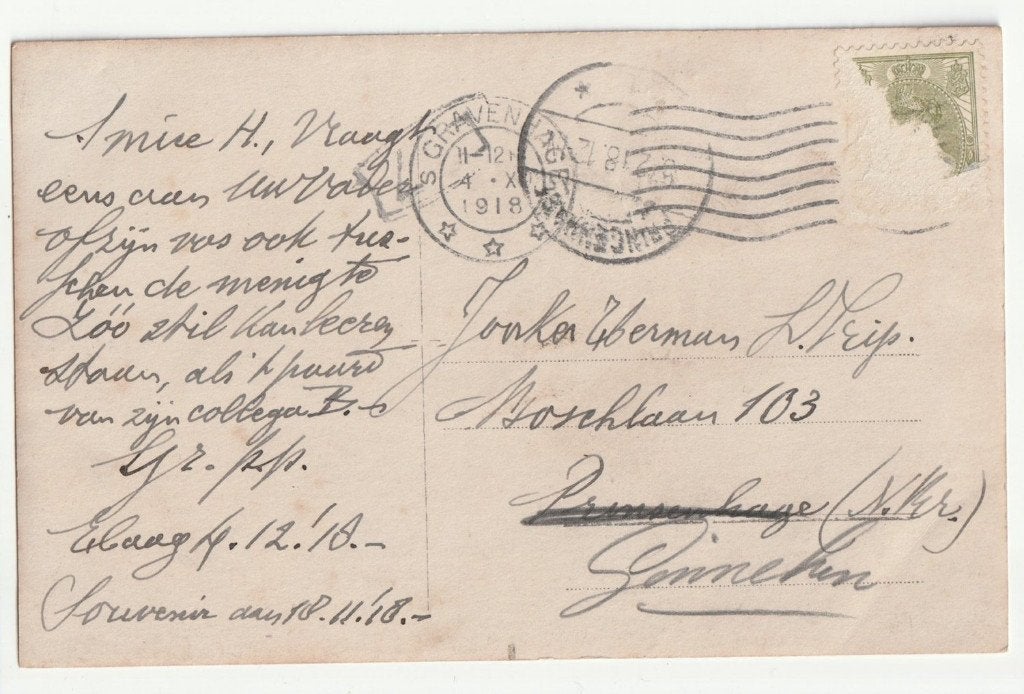 Amice H., Vraagt
eens aan Uw Vader
of zijn vos ook tus-
schen de menigte
zóó stil kan leeren
staan, als 't paard
van zijn collega B.-
Gr. p.p.
Haag 4.12.'18.-
Souvenir aan 18.11.'18.-
'S GRAVENHAGE
11-12
4 XII
1918
PRINCENHAGE
Jonker Herman L. Trip.
Boschlaan 103
Prinsenhage (N.Br.)
Ginneken